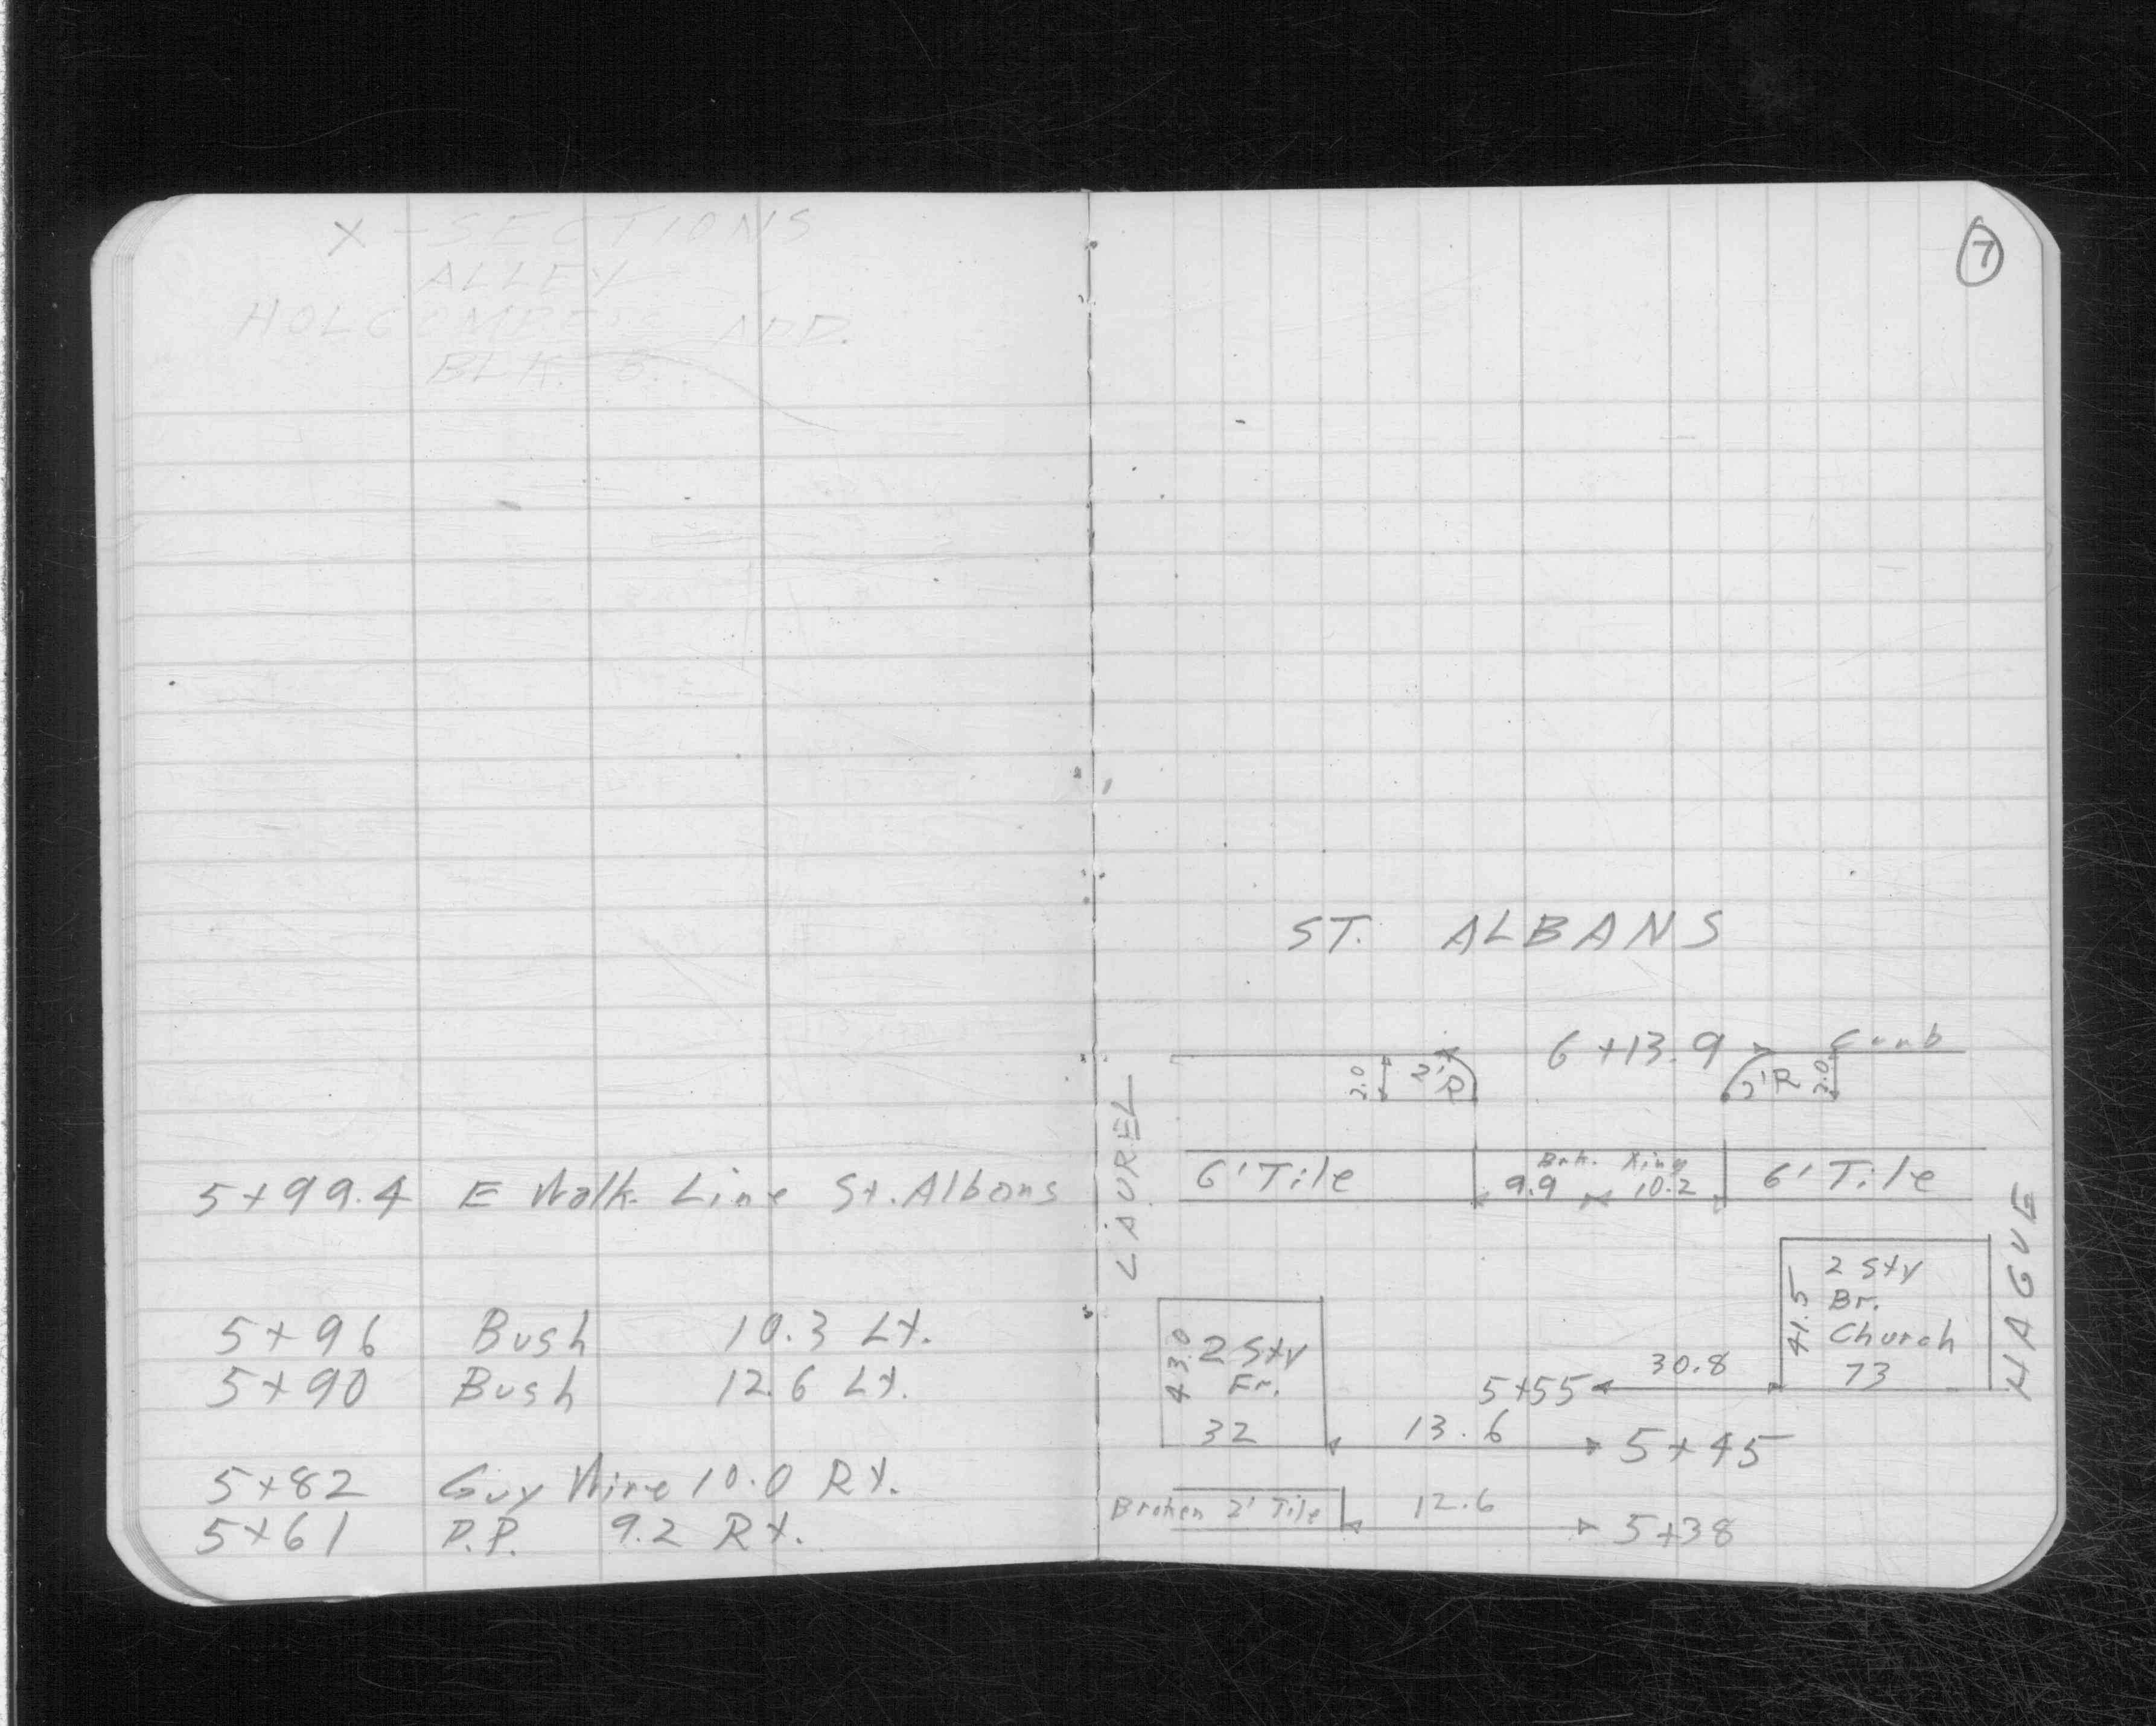 X-SECTIONS
ALLEY
HOLCOMBE'S ADD.
BLK. 5
5+99.4 E Walk Line St. Albans
5+96 Bush 10.3 Lt.
5+90 Bush 12.6 Lt.
5+82 Guy Wire 10.0 Rt.
5+61 P.P. 9.2 Rt.
7
ST. ALBANS
6+13.9 Curb
2.0 2'R 2'R 2.0
LAUREL
6' Tile Brk. Xing 6' Tile
9.9 10.2
HAGUE
2 Sty
Br.
Church
73
41.5
43.0 2 Sty
Fr.
32
5+55 30.8
13.6 5+45
Broken 2' Tile 12.6 5+38